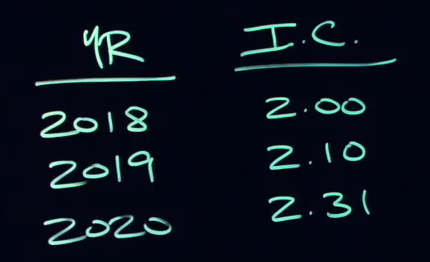 YR I.C.
2018 2.00
2019 2.10
2020 2.31